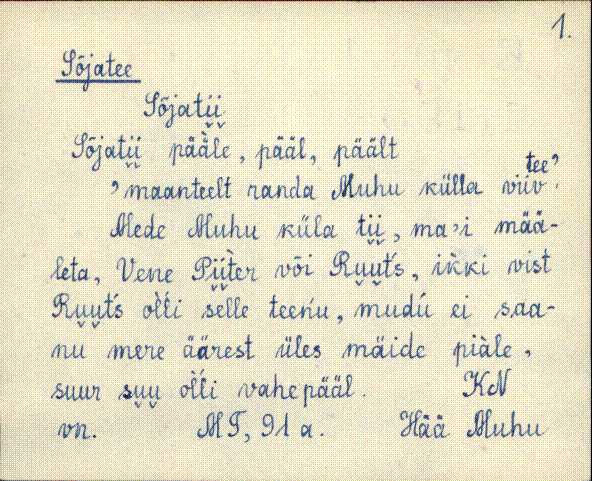 1.
Sõjatee
Sõjatii̮
Sõjatii̮ pääle, pääl, päält
'maanteelt randa Muhu külla viiv tee'.
Mede Muhu küla tii̮, ma'i mää-
leta, Vene Pii̮ter või Ruu̮t́s, ikki vist
Ruu̮t́s oĺli selle teeńu, mudú ei saa-
nu mere äärest üles mäide piàle,
suur suu̮ oĺli vahepääl. KN
vn. MT, 91 a. Hää Muhu